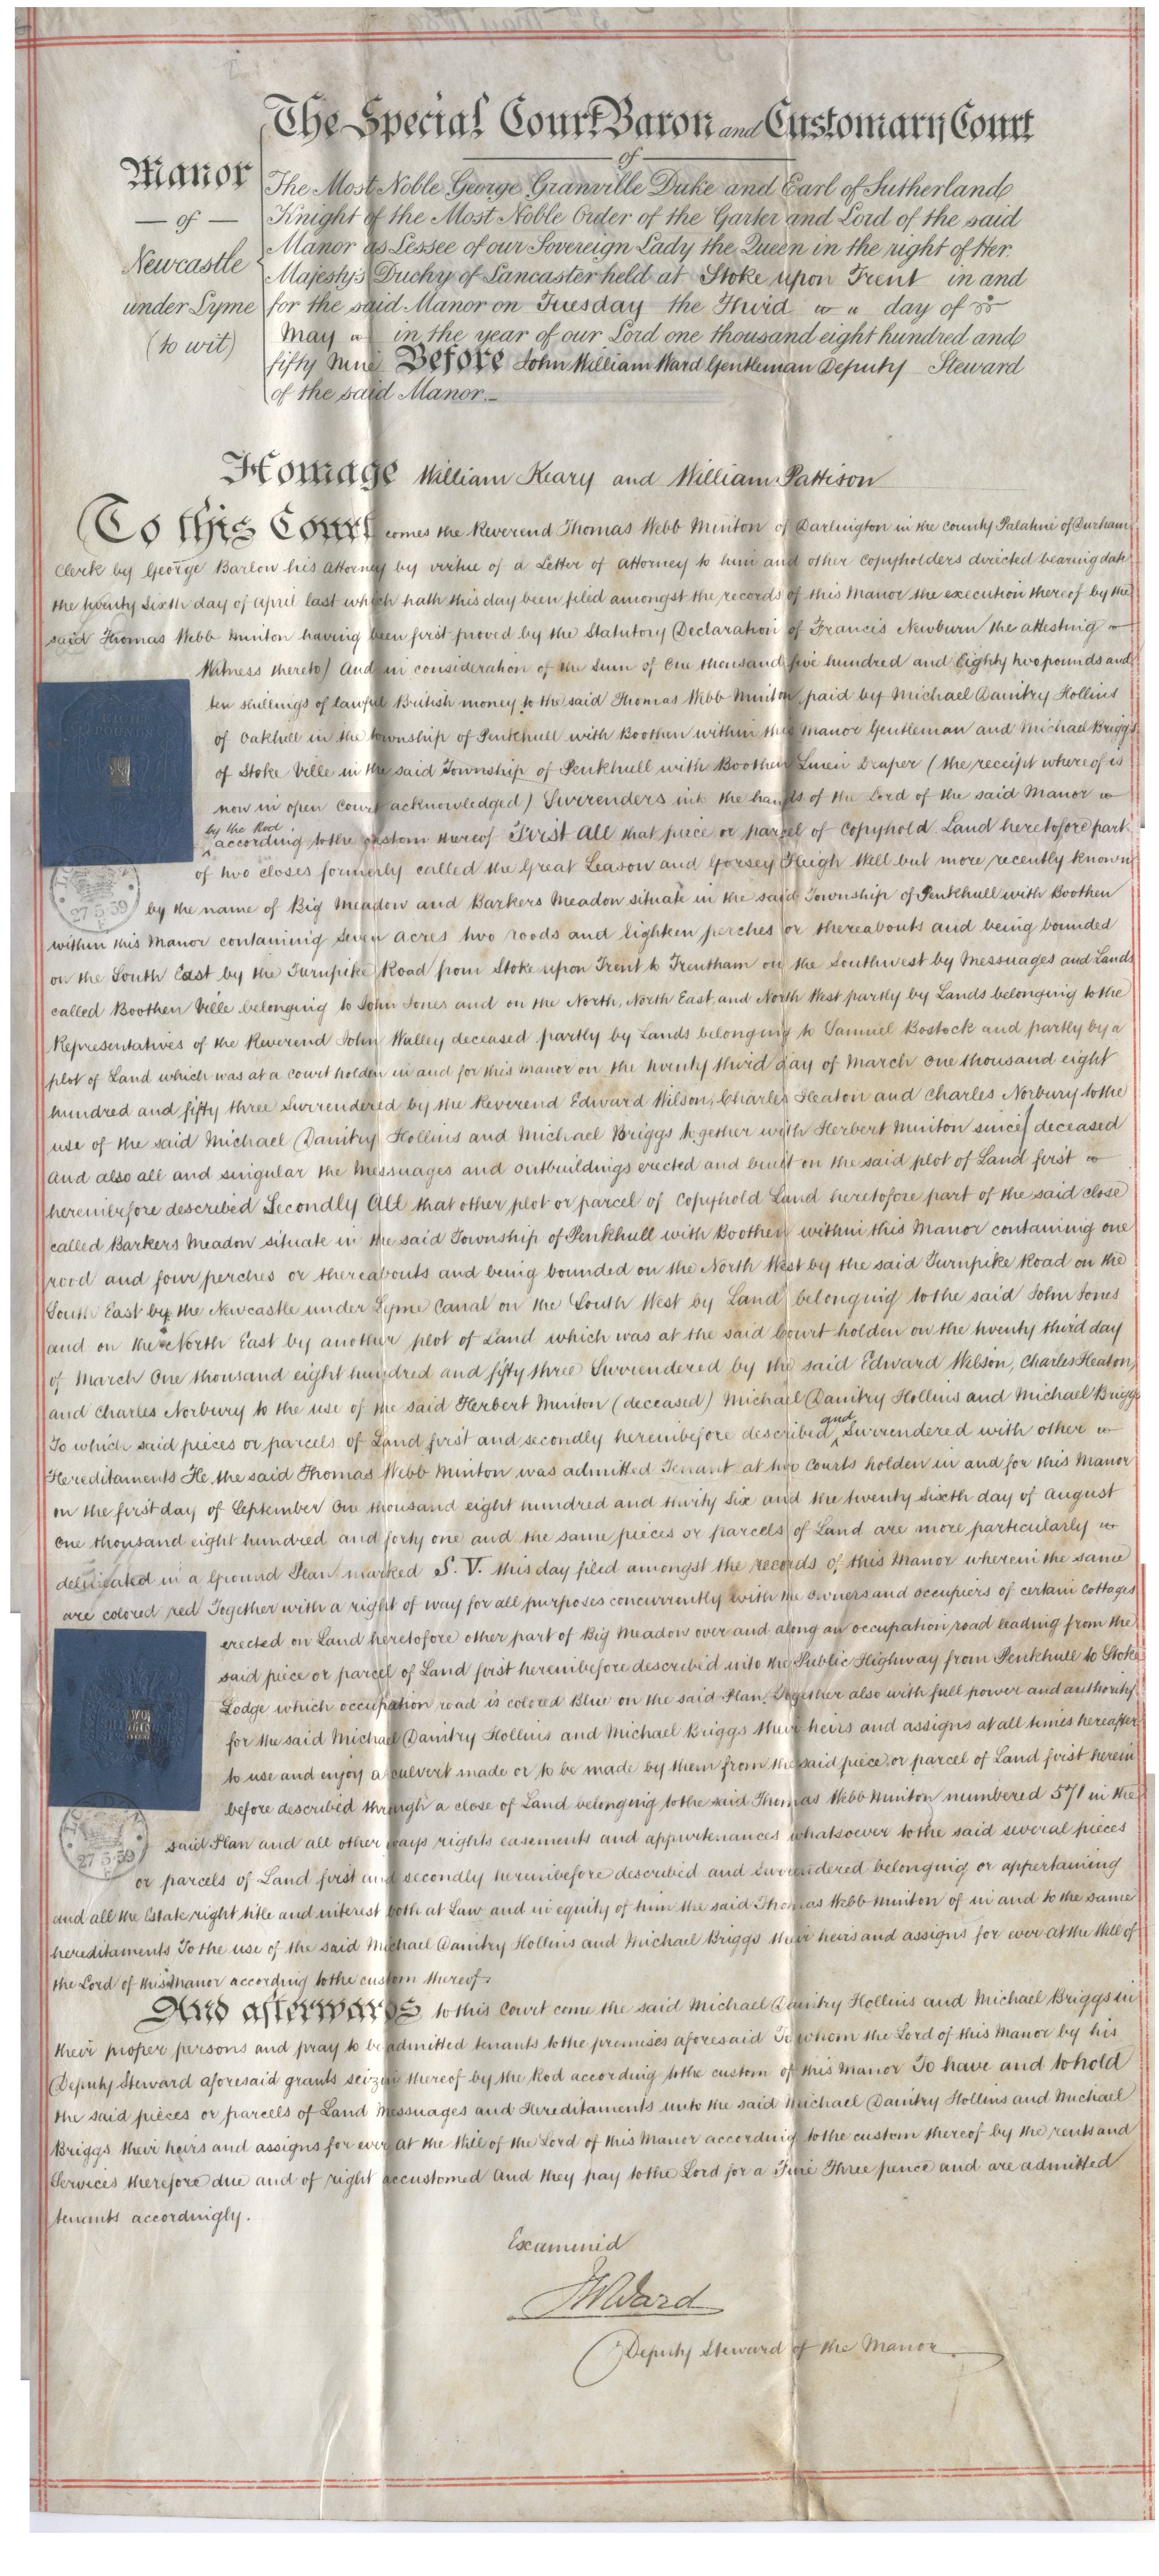 The Special Court Baron and Customary Court
of
Manor
of
Newcastle
under Lyme
(to wit)
The Most Noble George Granville Duke and Earl of Sutherland
Knight of the Most Noble Order of the Garter and Lord of the said
Manor as Lessee of our Sovereign Lady the Queen in the right of Her
Majesty's Duchy of Lancaster held at Stoke upon Trent in and
for the said Manor on Tuesday the Third day of
May in the year of our Lord one thousand eight hundred and
fifty Nine Before John William Ward Gentleman Deputy Steward
of the said Manor.
Homage William Keary and William Pattison
To this Court comes the Reverend Thomas Webb Minton of Darlington in the county Palatine of Durham
Clerk by George Barlow his attorney by virtue of a Letter of attorney to him and other copyholders directed bearing date
the twenty sixth day of april last which hath this day been filed amongst the records of this Manor the execution thereof by the
said Thomas Webb Minton having been first proved by the Statutory Declaration of Francis Newburn the attesting
Witness thereto) And in consideration of the Sum of One thousand five hundred and Eighty two pounds and
ten shillings of lawful British money to the said Thomas Webb Minton paid by Michael Daintry Hollins
of Oakhill in the township of Penkhull with Boothen within this Manor Gentleman and Michael Briggs
of Stoke Ville in the said Township of Penkhull with Boothen Linen Draper (the receipt whereof is
now in open Court acknowledged) Surrenders into the hands of the Lord of the said Manor
by the Rod
according to the custom thereof First All that piece or parcel of Copyhold Land heretofore part
of two closes formerly called the Great Leasow and Gorsey Heigh Well but more recently known
by the name of Big Meadow and Barkers Meadow situate in the said Township of Penkhull with Boothen
within this Manor containing Seven acres two roods and Eighteen perches or thereabouts and being bounded
on the South East by the Turnpike Road from Stoke upon Trent to Trentham on the Southwest by Messuages and Lands
called Boothen Ville belonging to John Jones and on the North, North East, and North West partly by Lands belonging to the
Representatives of the Reverend John Walley deceased partly by Lands belonging to Samuel Bostock and partly by a
plot of Land which was at a court holden in and for this manor on the twenty third day of March One thousand eight
hundred and fifty three Surrendered by the Reverend Edward Wilson, Charles Heaton and Charles Norbury to the
use of the said Michael Daintry Hollins and Michael Briggs together with Herbert Minton since deceased
And also all and singular the Messuages and outbuildings erected and built on the said plot of Land first
hereinbefore described Secondly All that other plot or parcel of Copyhold Land heretofore part of the said close
called Barkers Meadow situate in the said Township of Penkhull with Boothen within this Manor containing one
rood and four perches or thereabouts and being bounded on the North West by the said Turnpike Road on the
South East by the Newcastle under Lyme Canal on the South West by Land belonging to the said John Jones
and on the North East by another plot of Land which was at the said Court holden on the twenty third day
of March One thousand eight hundred and fifty three Surrendered by the said Edward Wilson, Charles Heaton,
and Charles Norbury to the use of the said Herbert Minton (deceased) Michael Daintry Hollins and Michael Briggs
and
To which said pieces or parcels of Land first and secondly hereinbefore described Surrendered with other
Hereditaments He the said Thomas Webb Minton was admitted Tenant at two Courts holden in and for this Manor
on the first day of September One thousand eight hundred and thirty Six and the twenty Sixth day of August
One thousand eight hundred and forty one and the same pieces or parcels of Land are more particularly
delineated in a Ground Plan marked S. V. this day filed amongst the records of this Manor wherein the same
are colored red Together with a right of way for all purposes concurrently with the owners and occupiers of certain cottages
erected on Land heretofore other part of Big Meadow over and along an occupation road leading from the
said piece or parcel of Land first hereinbefore described into the Public Highway from Penkhull to Stoke
Lodge which occupation road is colored Blue on the said Plan. Together also with full power and authority
for the said Michael Daintry Hollins and Michael Briggs their heirs and assigns at all times hereafter
to use and enjoy a culvert made or to be made by them from the said piece or parcel of Land first herein
before described through a close of Land belonging to the said Thomas Webb Minton numbered 571 in the
said Plan and all other ways rights easements and appurtenances whatsoever to the said several pieces
or parcels of Land first and secondly hereinbefore described and Surrendered belonging or appertaining
and all the Estate right title and interest both at Law and in equity of him the said Thomas Webb Minton of in and to the same
hereditaments To the use of the said Michael Daintry Hollins and Michael Briggs their heirs and assigns for ever at the Will of
the Lord of this Manor according to the custom thereof.
And afterwards to this Court come the said Michael Daintry Hollins and Michael Briggs in
their proper persons and pray to be admitted tenants to the premises aforesaid To whom the Lord of this Manor by his
Deputy Steward aforesaid grants seizin thereof by the Rod according to the custom of this Manor To have and to hold
the said pieces or parcels of Land Messuages and Hereditaments unto the said Michael Daintry Hollins and Michael
Briggs their heirs and assigns for ever at the Will of the Lord of this Manor according to the custom thereof by the rents and
Services therefore due and of right accustomed And they pay to the Lord for a Fine Three pence and are admitted
tenants accordingly.
Examined
JWWard
Deputy Steward of the Manor
27 5 59
27 5 59